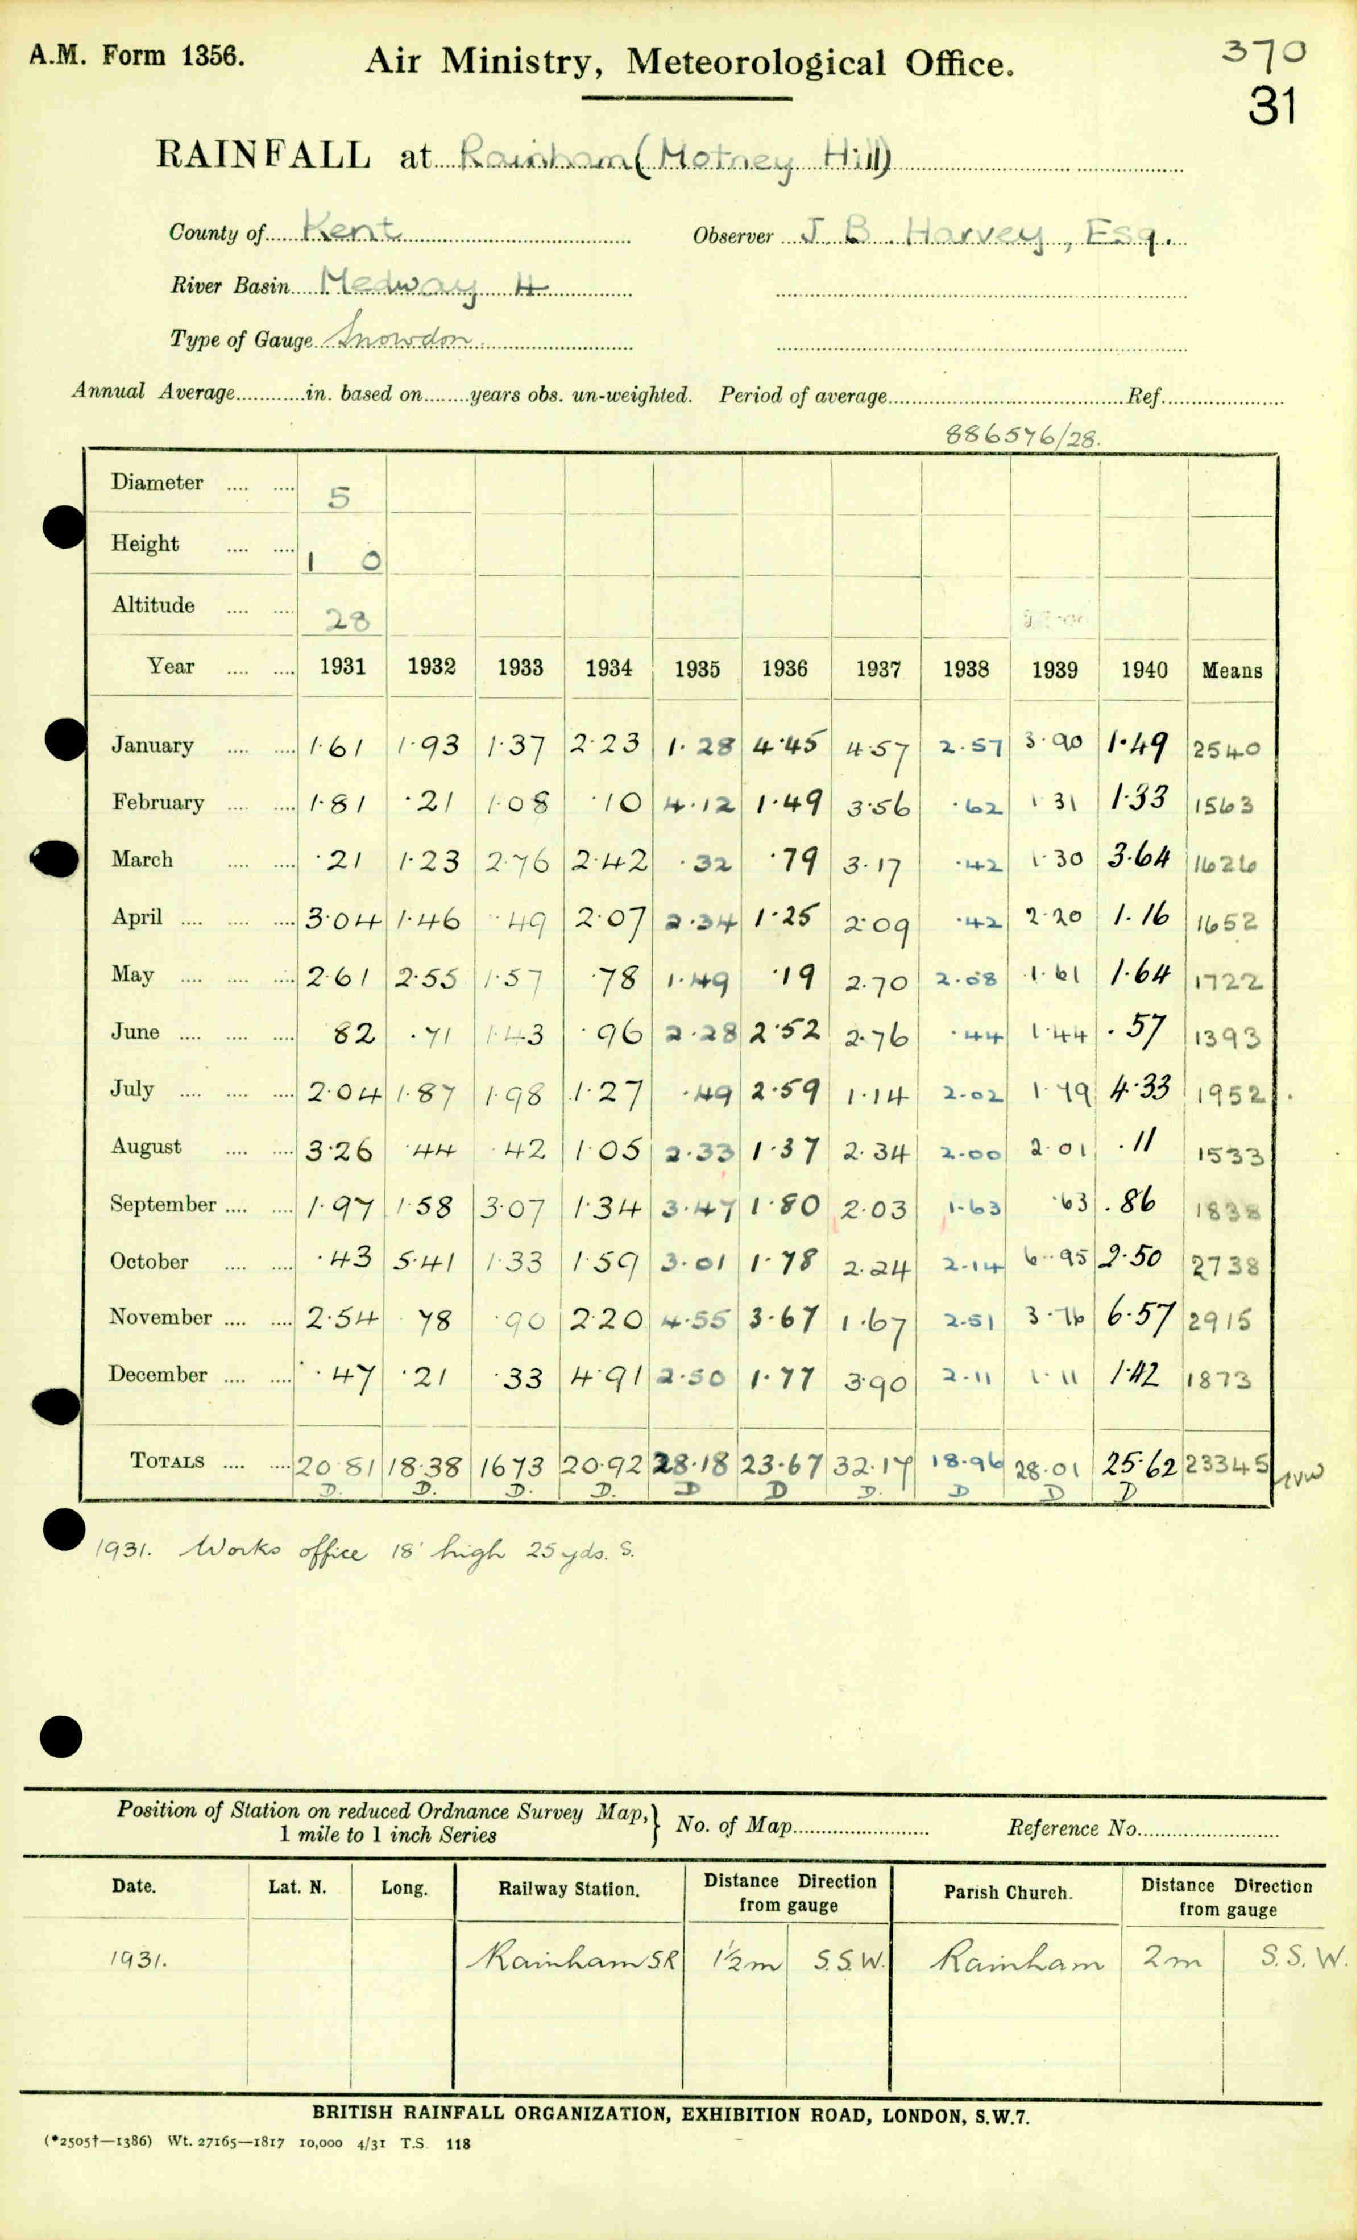 A.M. Form 1356.
Air Ministry, Meteorological Office.
370
31
RAINFALL at Rainham (Motney Hill)
County of Kent Observer J. B. Harvey, Esq.
River Basin Medway 4
Type of Gauge Snowdon
Annual Average............in. based on........years obs. un-weighted. Period of average.......... Ref..........
886576/28.
Diameter .... .... 5
Height .... .... 1 0
Altitude .... .... 28
Year .... .... 1931 1932 1933 1934 1935 1936 1937 1938 1939 1940 Means
January .... .... 1.61 1.93 1.37 2.23 1.28 4.45 4.57 2.57 3.90 1.49 2540
February .... .... 1.81 .21 1.08 .10 4.12 1.49 3.56 .62 1 31 1.33 1563
March .... .... .21 1.23 2.76 2.42 .32 .79 3.17 .42 1.30 3.64 1626
April .... .... .... 3.04 1.46 .49 2.07 2.34 1.25 2.09 .42 2.20 1.16 1652
May .... .... .... 2.61 2.55 1.57 .78 1.49 .19 2.70 2.08 1.61 1.64 1722
June .... .... .... 82 .71 1.43 .96 2.28 2.52 2.76 .44 1.44 .57 1393
July .... .... .... 2.04 1.87 1.98 1.27 .49 2.59 1.14 2.02 1.79 4.33 1952
August .... .... 3.26 .44 .42 1.05 2.33 1.37 2.34 2.00 2.01 .11 1533
September .... .... 1.97 1.58 3.07 1.34 3.47 1.80 2.03 1.63 .63 .86 1838
October .... .... .43 5.41 1.33 1.59 3.01 1.78 2.24 2.14 6.95 2.50 2738
November .... .... 2.54 78 .90 2.20 4.55 3.67 1.67 2.51 3.76 6.57 2915
December .... .... .47 .21 .33 4.91 2.50 1.77 3.90 2.11 1.11 1.42 1873
TOTALS .... .... 20.81 18.38 16.73 20.92 28.18 23.67 32.17 18.96 28.01 25.62 23345
D. D. D. D. D D D. D D D
1931. Works office 18' high 25 yds. S.
Position of Station on reduced Ordnance Survey Map, 1 mile to 1 inch Series } No. of Map.......... Reference No..........
Date. Lat. N. Long. Railway Station. Distance Direction from gauge Parish Church. Distance Direction from gauge
1931. Rainham SR 1½m S.S.W. Rainham 2m S.S.W.
BRITISH RAINFALL ORGANIZATION, EXHIBITION ROAD, LONDON, S.W.7.
(*2505†—1386) Wt. 27165—1817 10,000 4/31 T.S. 118